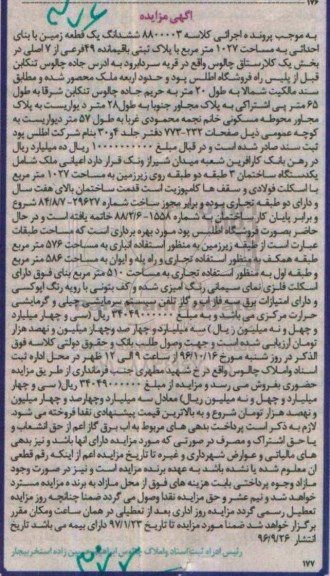 ۱۷۶
آگهی مزایده
به موجب پرونده اجرائی کلاسه ۸۸۰۰۰۰۳ ششدانگ یک قطعه زمین با بنای
احداثی به مساحت ۱۰۲۷ متر مربع با پلاک ثبتی باقیمانده ۴۹فرعی از ۷ اصلی در
بخش یک کلارستاق چالوس واقع در قریه سردابرود به آدرس جاده چالوس تنکابن
قبل از پلیس راه فروشگاه اطلس پود و حدود اربعه ملک محصور شده و مطابق
سند مالکیت شمالا به طول ۲۰ متر به حریم جاده چالوس تنکابن شرقا به طول
۶۵ متر پی اشتراکی به پلاک مجاور جنوبا به طول ۲۸ متر دیواریست به پلاک
مجاور محوطه مسکونی خانم نجمه محمودی غربا به طول ۵۷ متر دیواریست به
کوچه عمومی ذیل صفحات ۲۳۲-۷۷۳ دفتر جلد ۴و۳۰ بنام شرکت اطلس پود
ثبت سند صادر شده است و در قبال مبلغ ۱۰۰۰۰۰۰۰۰۰۰ ریال ده میلیارد ریال
در رهن بانک کارآفرین شعبه میدان شیراز ونک قرار دارد اعیانی ملک شامل
یکدستگاه ساختمان ۳ طبقه دو طبقه روی زیرزمین به مساحت ۱۰۲۷ متر مربع
با اسکلت فولادی و سقف ها کامپوزیت است قدمت ساختمان بالای هفت سال
و دارای دو طبقه تجاری بوده و برابر مجوز ساخت شماره ۲۹۶۳۷-۸۴/۸/۷ شروع
و برابر پایان کار ساختمان به شماره ۱۵۵۸-۸۸/۲/۶ خاتمه یافته است و در حال
حاضر بصورت فروشگاه اطلس پود مورد بهره برداری است که مساحت طبقات
عبارت است از طبقه زیرزمین به منظور استفاده انباری به مساحت ۵۷۶ متر مربع
طبقه همکف به منظور استفاده تجاری و راه پله و ایوان به مساحت ۵۸۶ متر مربع
و طبقه اول به منظور استفاده تجاری به مساحت ۵۱۰ متر مربع بنای فوق دارای
اسکلت فلزی نمای سیمانی رنگ آمیزی شده و کف بتونی با رویه رنگ اپوکسی
و دارای امتیازات برق سه فاز آب و گاز تلفن سیستم سرمایشی چیلر و گرمایشی
حرارت مرکزی می باشد و به مبلغ ۳۴۰۴۹۰۰۰۰۰۰ ریال (سی و چهار میلیارد
و چهل و نه میلیون ریال) سه میلیارد و چهارصد و چهار میلیون و نهصد هزار
تومان ارزیابی شده است و جهت وصول طلب بانک و حقوق دولتی کلاسه فوق
الذکر در روز شنبه مورخ ۹۶/۱۰/۱۶ از ساعت ۹ الی ۱۲ ظهر در محل اداره ثبت
اسناد واملاک چالوس واقع در خ شهید مطهری جنب فرمانداری از طریق مزایده
حضوری بفروش می رسد و مزایده از مبلغ ۳۴۰۴۹۰۰۰۰۰۰ ریال (سی و چهار
میلیارد و چهل و نه میلیون ریال) معادل سه میلیارد وچهارصد و چهار میلیون
و نهصد هزار تومان شروع و به بالاترین قیمت پیشنهادی نقدا فروخته می شود
لازم به ذکر است پرداخت بدهی های مربوط به آب برق گاز اعم از حق انشعاب و
یا حق اشتراک و مصرف در صورتی که مورد مزایده دارای آنها باشد و نیز بدهی
های مالیاتی و عوارض شهرداری و غیره تا تاریخ مزایده اعم از اینکه رقم قطعی
آن معلوم شده یا نشده باشد به عهده برنده مزایده است و نیز در صورت وجود
مازاد وجوه پرداختی بابت هزینه های فوق از محل مازاد به برنده مزایده مسترد
خواهد شد و نیم عشر و حق مزایده نقدا وصول می گردد ضمنا چنانچه روز مزایده
تعطیل رسمی گردد مزایده روز اداری بعد از تعطیلی در همان ساعت ومکان مقرر
برگزار خواهد شد ضمنا مورد مزایده تا تاریخ ۹۷/۱/۲۳ دارای بیمه می باشد تاریخ
انتشار ۹۶/۹/۲۶
رئیس اداره ثبت اسناد واملاک چالوس زاده استخربیجار
۱۷۷